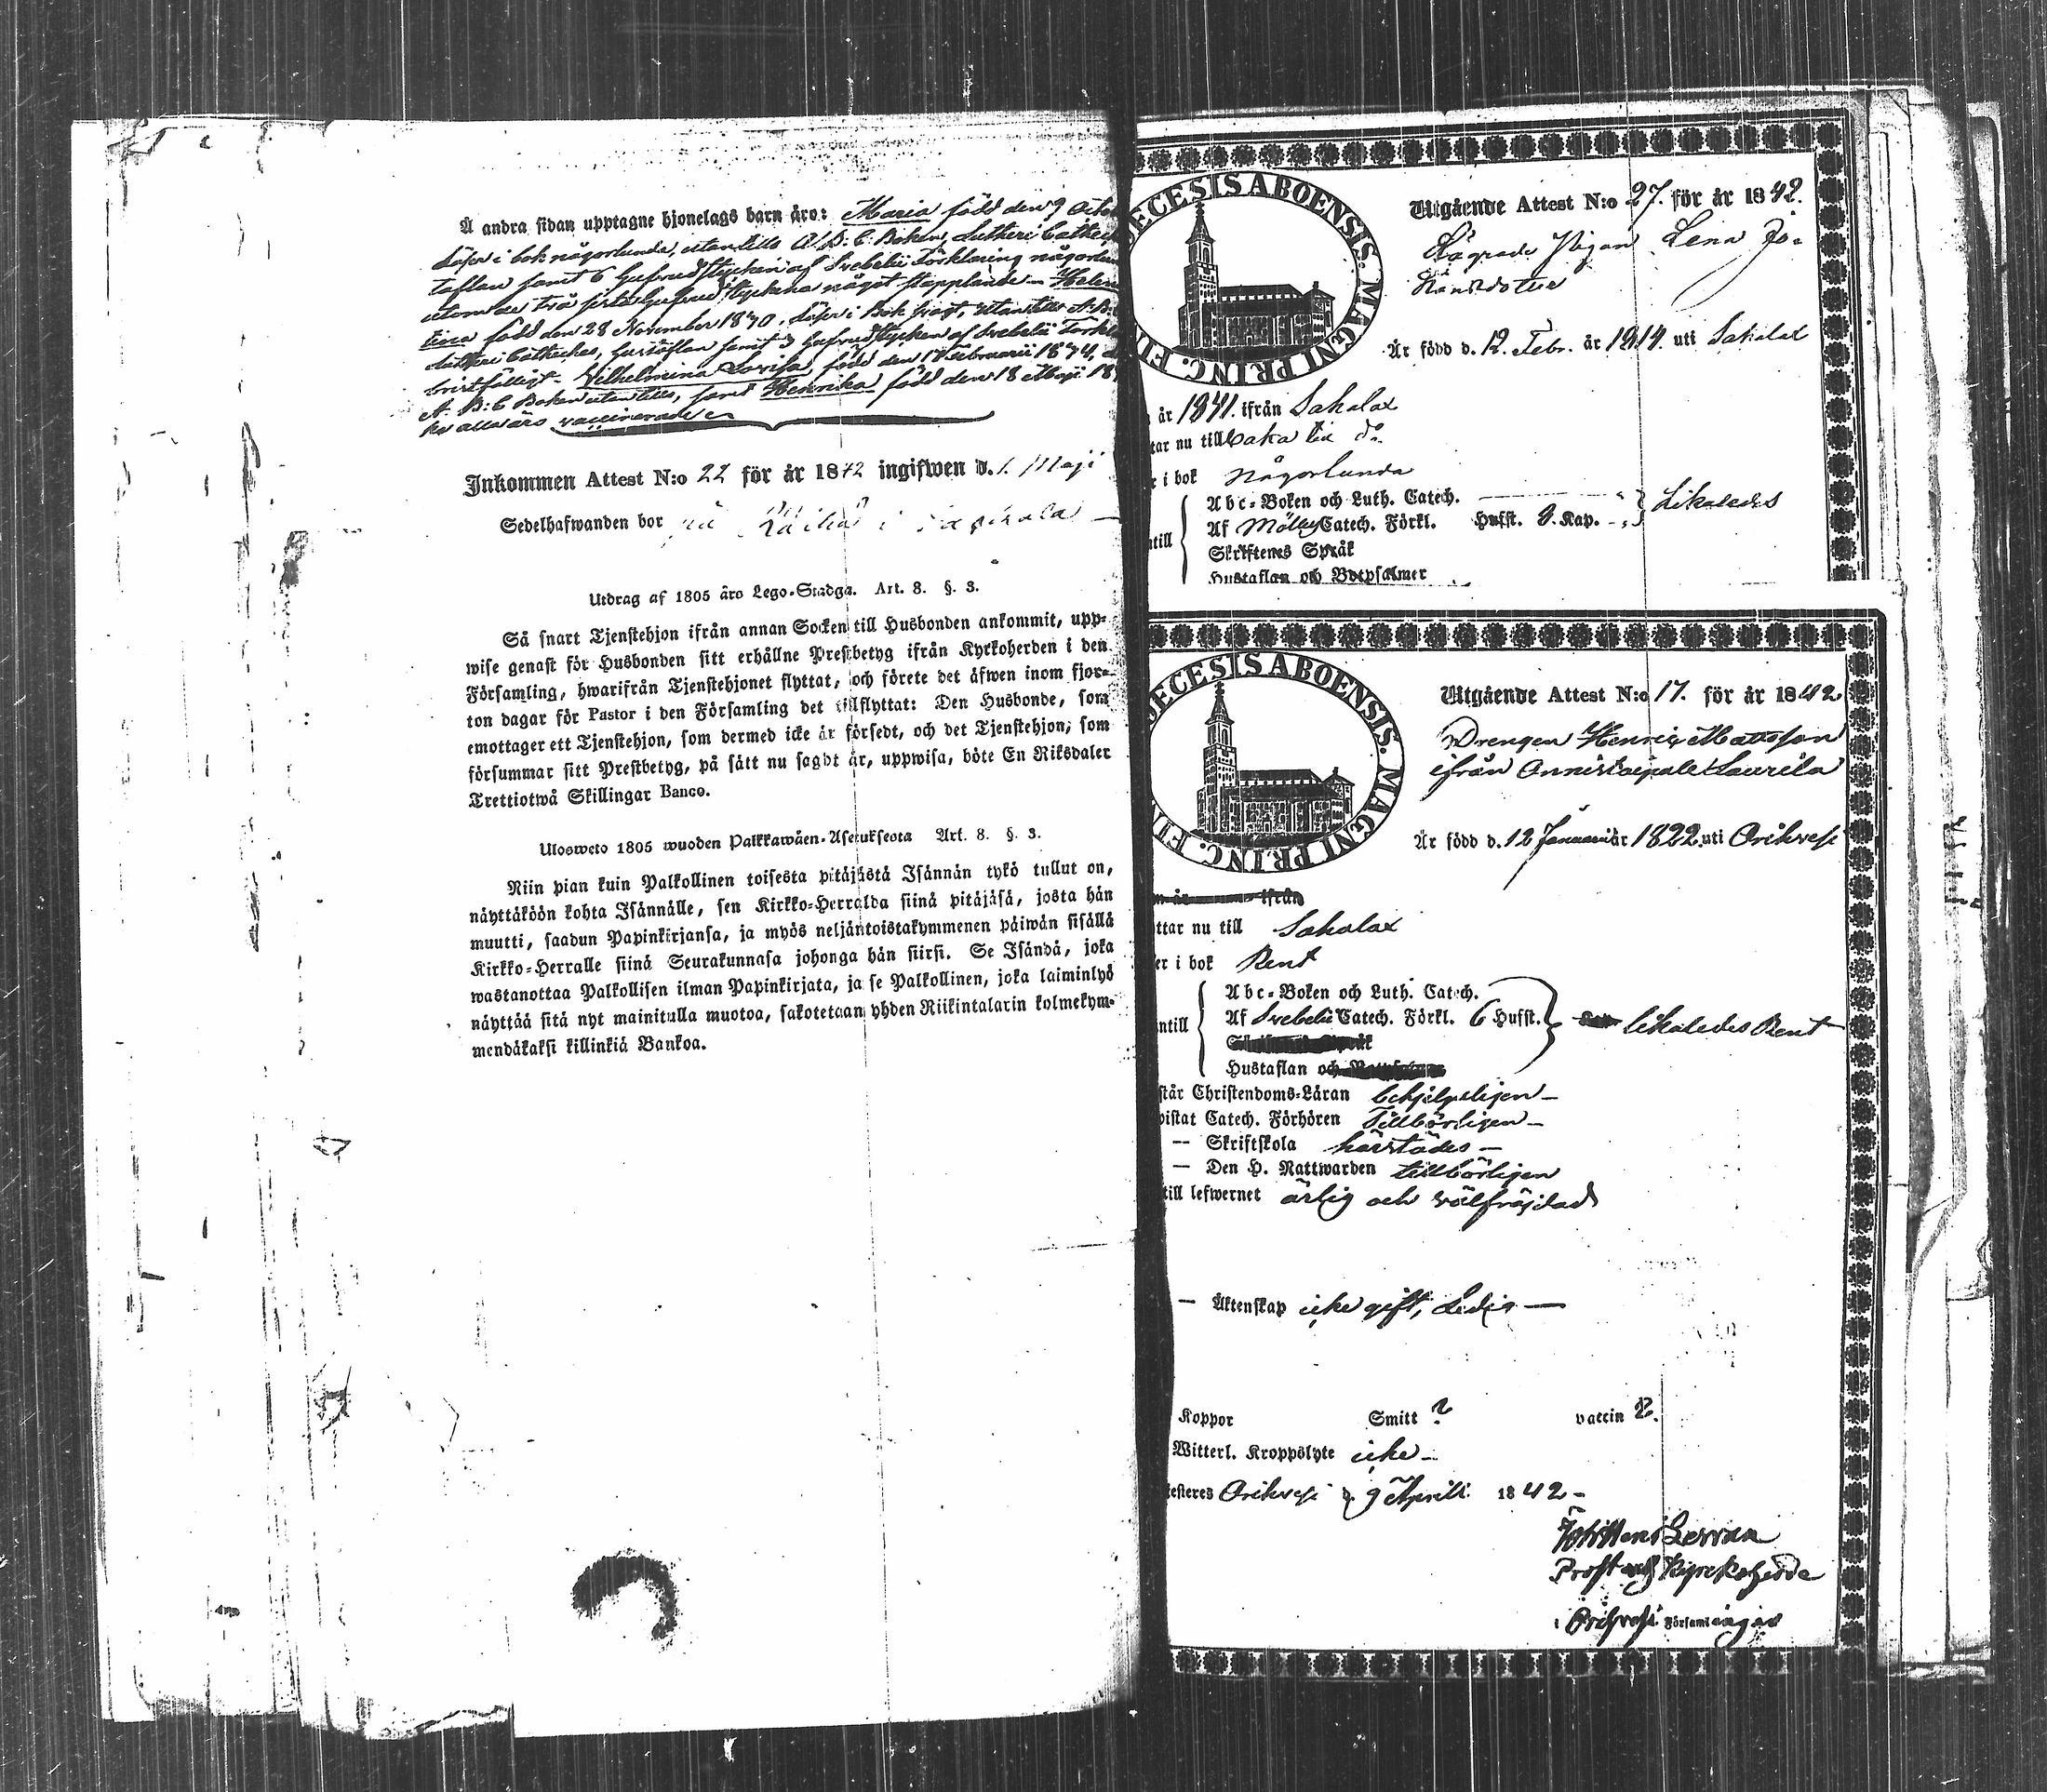 Å andra sidan upptagne hjonelags barn äro: Maria född den 9 Octo
läser i bok någorlunda, utantill A. B. C. Boken, Lutheri Catech
taflan samt 6 hufvudstycken af Svebelii Förklaring någorlun
utom de två sista hufvudstyckena något stapplande – Helen
född den 28 November 18 läser i Bok utantill A. B.
Lutheri Catheches, hustaflan samt 3 hufvudstycken af Svebelii Förkl
bristfälligt – Vilhelmina Lovisa född den 17 Februarii 18
A. B. C Boken utantill, samt Henrika född den 18 Maji 18
alla äro vaccinerade
Inkommen Attest N:o 22 för år 1842 ingifwen d. 1. Maji
Sedelhafwanden bor i
Utdrag af 1805 års Lego-Stadga. Art. 8. §. 3.
Så snart Tjenstehjon ifrån annan Socken till Husbonden ankommit, upp-
wise genast för Husbonden sitt erhållne Prestbetyg ifrån Kyrkoherden i den
Församling, hwarifrån Tjenstehjonet flyttat, och förete det äfwen inom fjor-
ton dagar för Pastor i den Församling det tillflyttat: Den Husbonde, som
emottager ett Tjenstehjon, som dermed icke är försedt, och det Tjenstehjon, som
försummar sitt Prestbetyg, på sätt nu sagdt är, uppwisa, böte En Riksdaler
Trettiotwå Skillingar Banco.
Ulosweto 1805 wuoden Palkkawäen-Asetuksesta Art. 8. §. 3.
Niin pian kuin Palkollinen toisesta pitäjästä Isännän tykö tullut on,
näyttäköön kohta Isännälle, sen Kirkko-Herralda siinä pitäjäsä, josta hän
muutti, saadun Papinkirjansa, ja myös neljäntoistakymmenen päiwän sisällä
Kirkko-Herralle siinä Seurakunnasa johonga hän siirsi. Se Isändä, joka
wastanottaa Palkollisen ilman Papinkirjata, ja se Palkollinen, joka laiminlyö
näyttää sitä nyt mainitulla muotoa, sakotetaan yhden Riikintalarin kolmekym-
mendäkaksi killinkiä Bankoa.
ECESIS ABOENSIS. MAGNI PRINC. FI
Utgående Attest N:o 27. för år 1842.
Pigan Lena Jo-
hansdotter
Är född d. 12. Febr. år 1814. uti Sakalax
år 1841. ifrån Sakalax
tar nu till
r i bok någorlunda
Abc-Boken och Luth. Catech.
Af Möllers Catech. Förkl. Hufst. 9. Kap. likaledes
ntill
Skriftenes Språk
Hustaflan och Botpsalmer
ECESIS ABOENSIS. MAGNI PRINC. FI
Utgående Attest N:o 17. för år 1842
Drengen Henric Mattsson
ifrån Laurila
Är född d. 12 Januarii år 1822 uti Orihvesi
n år ifrån
ttar nu till Sakalax
er i bok Rent
Abc-Boken och Luth. Catech.
ntill Af Svebelii Catech. Förkl. 6 Hufst. likaledes Rent
Hustaflan och
står Christendoms-Läran behjelpeligen –
wistat Catech. Förhören Tillbörligen –
— Skriftskola härstädes –
— Den H. Nattwarden tillbörligen
till lefwernet ärlig och välfräjdad
— Äktenskap icke gift, Ledig —
Koppor Smitt ? vaccin ?.
Witterl. Kroppslyte icke –
testeres Orihvesi d. 9 Aprill 1842 –
Prost och Kyrckoherde
i Orihvesi Församlingar